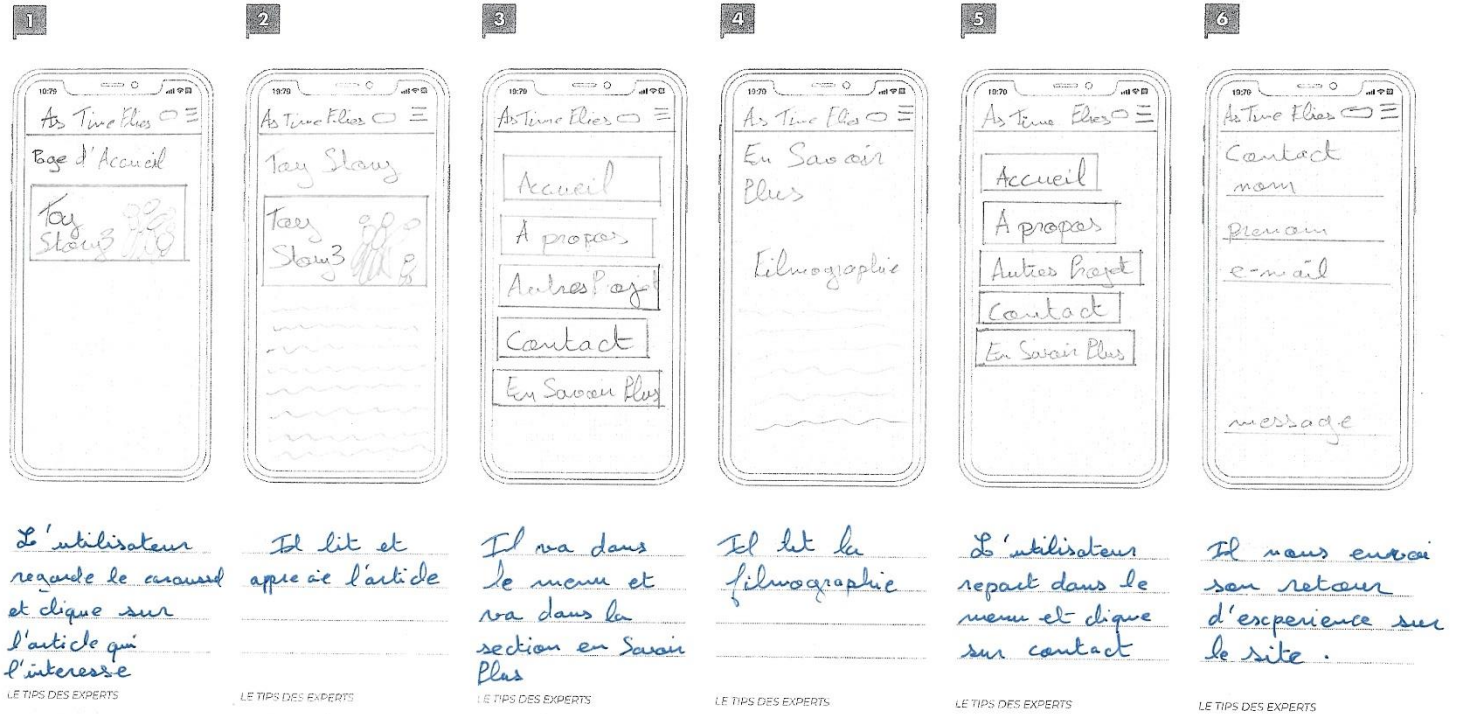 1
10:70
As Time Flies
Page d'Accueil
Toy
Story3
L'utilisateur
regarde le carousel
et clique sur
l'article qui
l'interesse
LE TIPS DES EXPERTS
2
10:70
As Time Flies
Toy Story
Toy
Story3
Il lit et
apprecie l'article
LE TIPS DES EXPERTS
3
10:70
As Time Flies
Accueil
A propos
Autres Projet
Contact
En Savoir Plus
Il va dans
le menu et
va dans la
section en Savoir
Plus
LE TIPS DES EXPERTS
4
10:70
As Time Flies
En Savoir
Plus
Filmographie
Il lit la
filmographie
LE TIPS DES EXPERTS
5
10:70
As Time Flies
Accueil
A propos
Autres Projet
Contact
En Savoir Plus
L'utilisateur
repart dans le
menu et clique
sur contact
LE TIPS DES EXPERTS
6
10:70
As Time Flies
Contact
nom
prenom
e-mail
message
Il nous envoi
son retour
d'experience sur
le site.
LE TIPS DES EXPERTS